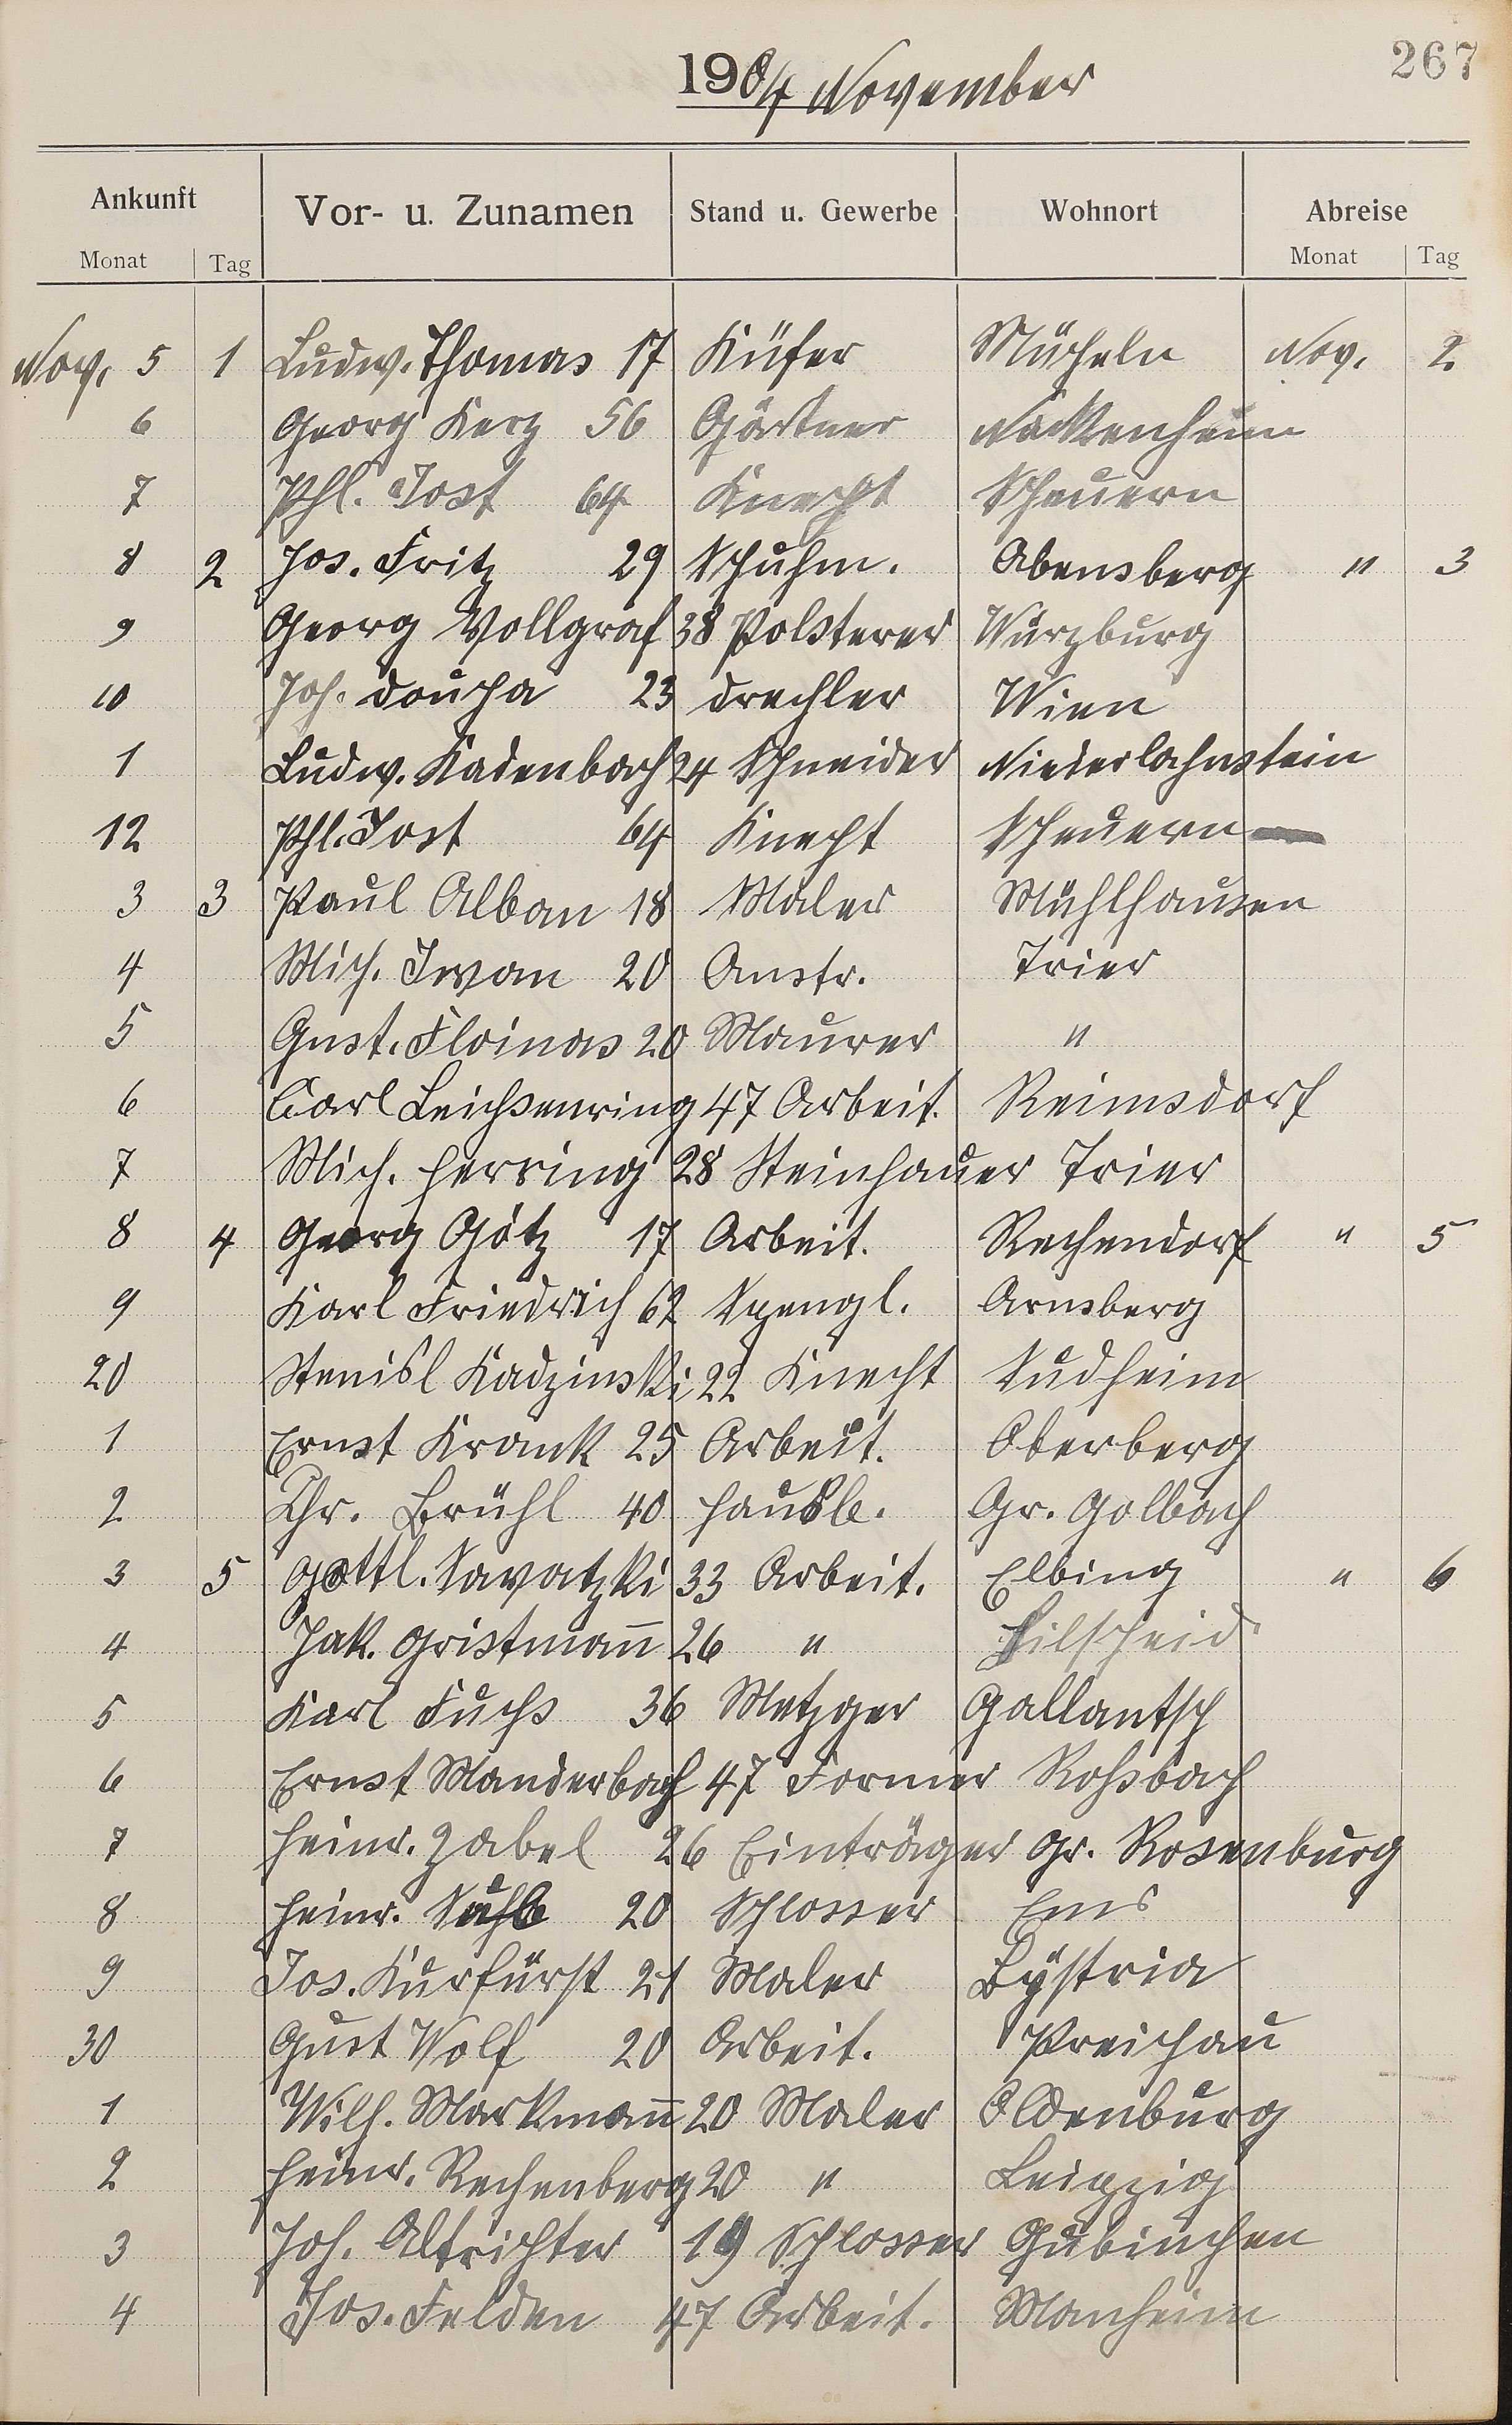 267
1904 November
Ankunft Vor- u. Zunamen Stand u. Gewerbe Wohnort Abreise
Monat Tag Monat Tag
Nov. 5 1 Ludw. Thomas 17 Küfer Mücheln Nov. 2
6 Georg Kerz 56 Gärtner Nackenheim
7 Phl. Jost 64 Knecht Scheuern
8 2 Jos. Fritz 29 Schuhm. Abensberg " 3
9 Georg Vollgraf 38 Polsterer Würzburg
10 Joh. Doucha 23 Drechler Wien
1 Ludw. Kadenbach 24 Schneider Niederlahnstein
12 Phl. Jost 64 Knecht Scheuern
3 3 Paul Alban 18 Maler Mühlhausen
4 Mich. Iwan 20 Anstr. Trier
5 Gust. Floinas 20 Maurer "
6 Carl Leichsenring 47 Arbeit. Reimsdorf
7 Mich. Herring 28 Steinhauer Trier
8 4 Georg Götz 17 Arbeit. Rechendorf " 5
9 Karl Friedrich 62 Spengl. Arnsberg
20 Stenisl Kadzinski 22 Knecht Sudheim
1 Ernst Krank 25 Arbeit. Oderberg
2 Chr. Brühl 40 Hausb. Gr. Golbach
3 5 Gottl. Savatzki 33 Arbeit. Elbing " 6
4 Jak. Gristmañ 26 " Hilscheid
5 Karl Fuchs 36 Metzger Gallantsch
6 Ernst Manderbach 47 Former Roßbach
7 Heinr. Zabel 26 Einträger Gr. Rosenburg
8 Heinr. 20 Schlosser Ems
9 Jos. Kurfürst 21 Maler Bystria
30 Gust Wolf 20 Arbeit. Preichau
1 Wilh. Markmañ 20 Maler Oldenburg
2 Heinr. Rechenberg 20 " Leipzig
3 Joh. Altrichter 19 Schlosser Gubinchen
4 Jos. Felden 47 Arbeit. Manheim